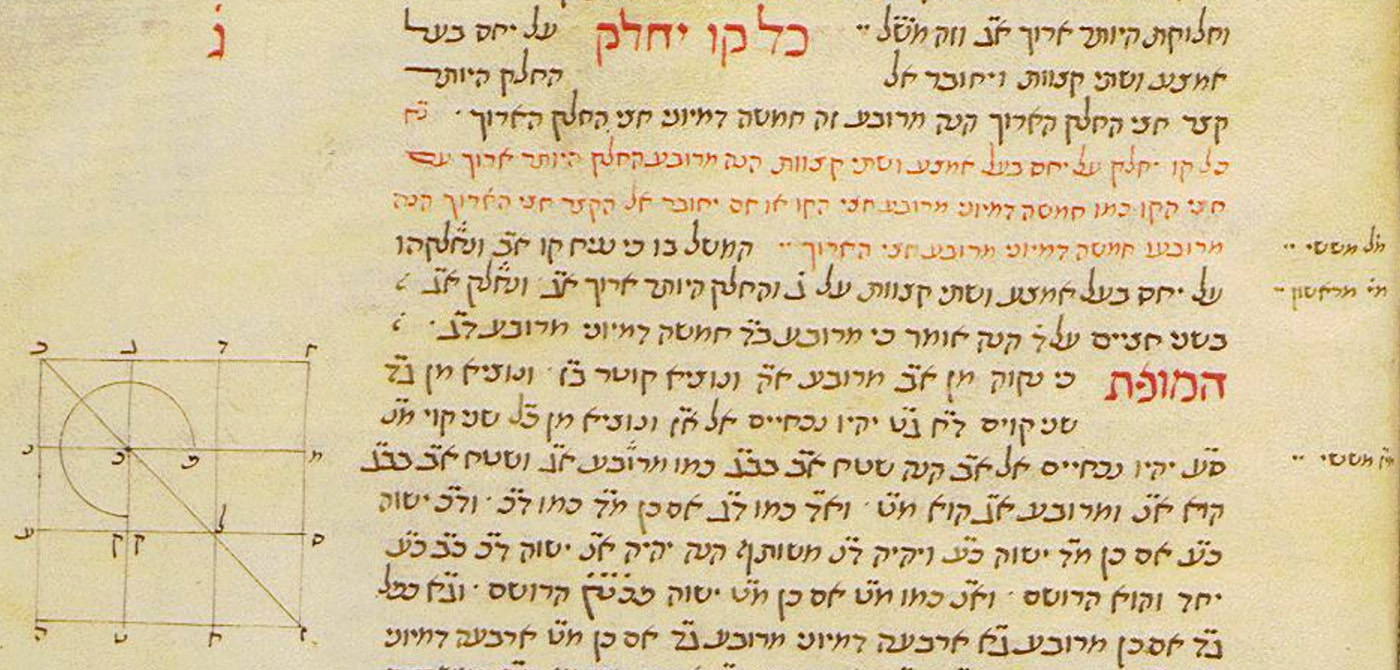 נ
וחלוקת היותר ארוך אב וזה משל ·· כל קו יחלק על יחס בעל
אמצע ושתי קצוות ויחובר אל החלק היותר
קצר חצי החלק הארוך הנה מרובע זה חמשה דמיוני חצי החלק הארוך · נ״א
כל קו יחלק על יחס בעל אמצע ושתי קצוות הנה מרובע החלק היותר ארוך עם
חצי הקו כמו חמשה דמיוני מרובע חצי הקו או אם יחובר אל הקצר חצי הארוך הנה
מרובעו חמשה דמיוני מרובע חצי הארוך ·· המשל בו כי נניח קו אב ונחלקהו
על יחס בעל אמצע ושתי קצוות על ג והחלק היותר ארוך אג ונחלק אג
בשני חציים על ד הנה אומר כי מרובע בד חמשה דמיוני מרובע דג ·
המופת כי נקוה מן אב מרובע אה ונוציא קוטר בז · ונוציא מן גד
שני קוים דח גט יהיו נכחיים אל אז ונוציא מן כל שני קוי מנ
סע יהיו נכחיים אל אב הנה שטח אב בבג כמו מרובע אג ושטח אב בבג
הוא אנ ומרובע אג הוא מט · ואד כמו דג אם כן מד כמו דכ · ודכ ישוה
כע אם כן מד ישוה כע ויהיה דנ משותף הנה יהיה אנ ישוה דכ כב כע
יחד והוא הרושם · ואנ כמו מט אם כן מט ישוה הרושם · וגא ככל
גד אם כן מרובע גא ארבעה דמיוני מרובע גד אם כן מט ארבעה דמיוני
מששי ··
מי׳ מראשון ··
מששי ··
א ד ג ב
מ כ נ
ס ל ע
ז ח ט ה